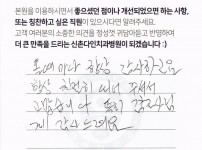 본원을 이용하시면서 좋으셨던 점이나 개선되었으면 하는 사항,
또는 칭찬하고 싶은 직원이 있으시다면 알려주세요.
고객 여러분의 소중한 의견을 정성껏 귀담아듣고 반영하여
더 큰 만족을 드리는 신촌다인치과병원이 되겠습니다 :)
올때마다 항상 감사하고요
항상 친절히 해 주셔서
고맙습니다 특히
감사드려요